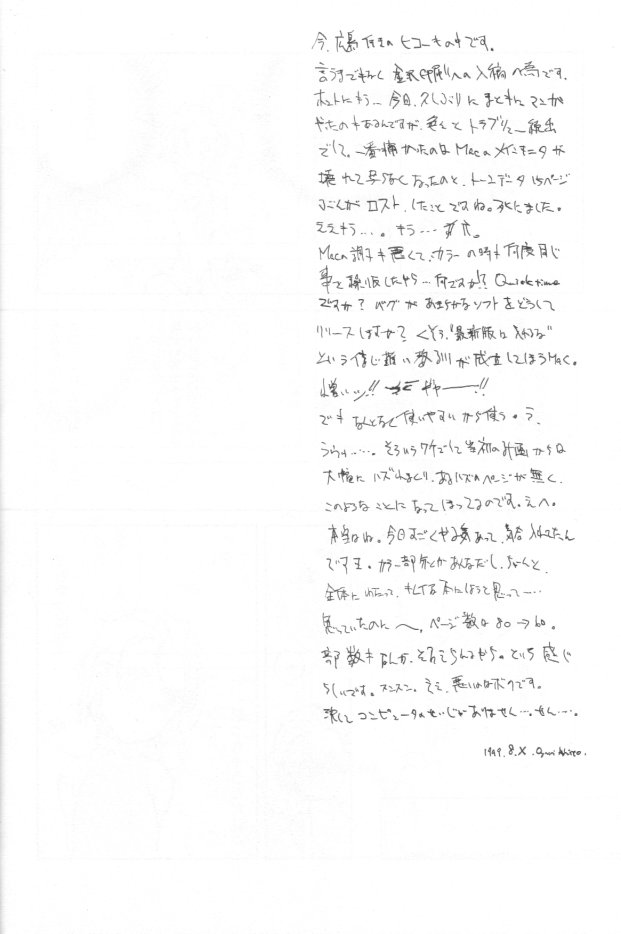 今、広島行きのヒコーキの中です。
言うまでもなく 金沢印刷への入稿の為です。
ホントにもう… 今日、久しぶりにまともに マンガ
やったのもあるんですが、色々と トラブル 続出
でして。一番痛かったのは Macのメインモニタが
壊れて 見えなくなったのと、トーンデータ 15ページ
ぶんが ロスト したこと ですね。死にました。
ええもう…。もう…
Mac 調子も悪くて、カラーの時も 何度同じ
事を 繰り返したやら… 何ですか!? Quicktime
ですか? バグが あきらかなソフトを どうして
リリースしますか? くそう、"最新版は 入れるな"
という 信じ難い 教訓が 成立してしまう Mac。
憎いッ!! ギャーー!!
でも なんとなく 使いやすい から 使う。う、
ううっ……。そういうワケでして 当初の計画からは
大幅に ハズれまくり、あるハズのページが 無く、
このような ことに なって しまってるのです。えへ。
本当はね。今日すごく やる気あって、気合 入れてたん
ですヨ。カラー部分とか あんなだし、ちゃんと、
全体に わたって、キレイな 本にしようと 思って……
思っていたのに 〜。ページ数は 80→60。
部数も なんか、そろえらんないやら。という 感じ
らしいです。スンスン。ええ、悪いのは ボクです。
決して コンピュータの せいじゃ ありません…。せん…。
1999. 8. X.